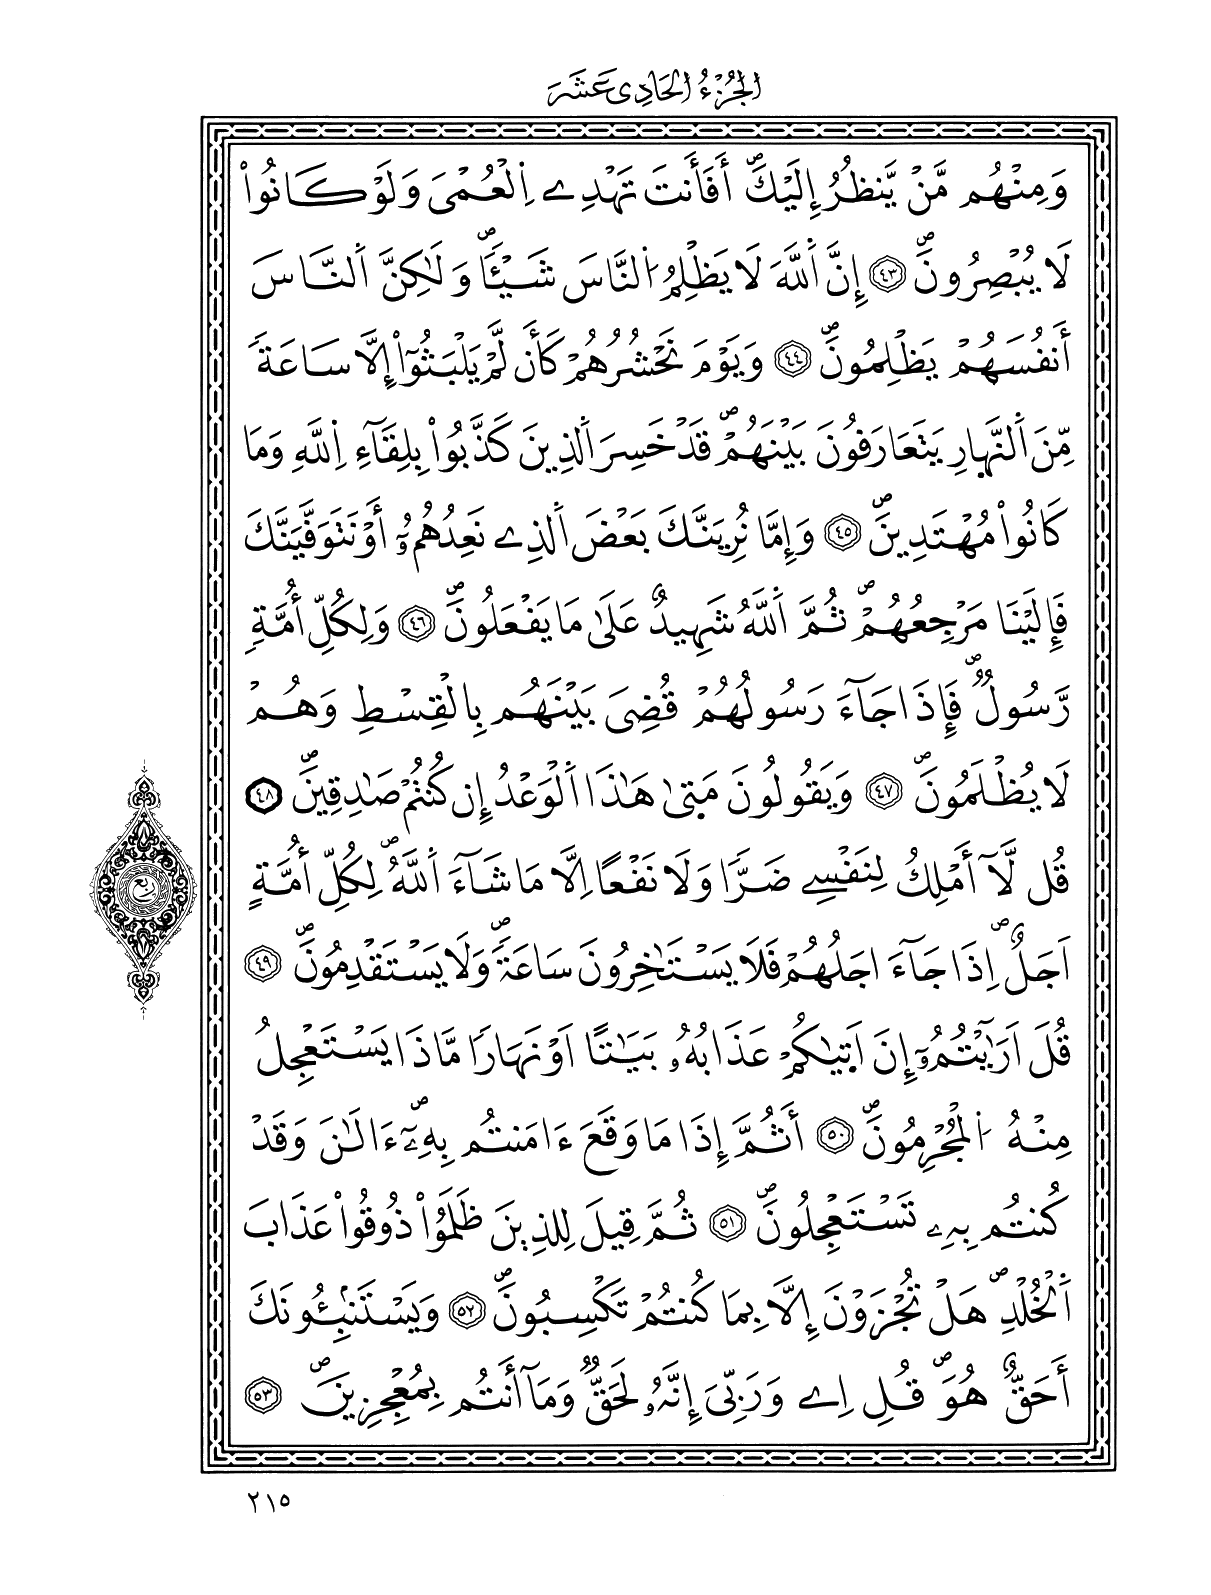 الجُزْءُ الحَادِي عَشَرَ
وَمِنْهُم مَّنْ يَّنظُرُ إِلَيْكَۖ أَفَأَنتَ تَهْدِے اِ۬لْعُمْىَ وَلَوْ كَانُواْ
لَا يُبْصِرُونَۖ ٤٣ إِنَّ اَ۬للَّهَ لَا يَظْلِمُ اُ۬لنَّاسَ شَيْـٔاٗۖ وَلَٰكِنَّ اَ۬لنَّاسَ
أَنفُسَهُمْ يَظْلِمُونَۖ ٤٤ وَيَوْمَ نَحْشُرُهُمْ كَأَن لَّمْ يَلْبَثُوٓاْ إِلَّا سَاعَةٗ
مِّنَ اَ۬لنَّهِارِ يَتَعَارَفُونَ بَيْنَهُمْۖ قَدْ خَسِرَ اَ۬لذِينَ كَذَّبُواْ بِلِقَآءِ اِ۬للَّهِ وَمَا
كَانُواْ مُهْتَدِينَۖ ٤٥ وَإِمَّا نُرِيَنَّكَ بَعْضَ اَ۬لذِے نَعِدُهُمُۥٓ أَوْ نَتَوَفَّيَنَّكَ
فَإِلَيْنَا مَرْجِعُهُمْۖ ثُمَّ اَ۬للَّهُ شَهِيدٌ عَلَىٰ مَا يَفْعَلُونَۖ ٤٦ وَلِكُلِّ أُمَّةٖ
رَّسُولٞۖ فَإِذَا جَآءَ رَسُولُهُمْ قُضِىَ بَيْنَهُم بِالْقِسْطِ وَهُمْ
لَا يُظْلَمُونَۖ ٤٧ وَيَقُولُونَ مَتىٰ هَٰذَا اَ۬لْوَعْدُ إِن كُنتُمْ صَٰدِقِينَۖ ٤٨
قُل لَّآ أَمْلِكُ لِنَفْسِے ضَرّاٗ وَلَا نَفْعاً اِلَّا مَا شَآءَ اَ۬للَّهُۖ لِكُلِّ أُمَّةٍ
اَجَلٌۖ اِذَا جَآءَ اجَلُهُمْ فَلَا يَسْتَٰخِرُونَ سَاعَةٗۖ وَلَا يَسْتَقْدِمُونَۖ ٤٩
قُلَ اَرَٰٓيْتُمُۥٓ إِنَ اَتٜىٰكُمْ عَذَابُهُۥ بَيَٰتاً اَوْ نَهَاراٗ مَّاذَا يَسْتَعْجِلُ
مِنْهُ اُ۬لْمُجْرِمُونَۖ ٥٠ أَثُمَّ إِذَا مَا وَقَعَ ءَامَنتُم بِهِۦٓۖ ءَالَٰنَ وَقَدْ
كُنتُم بِهِۦ تَسْتَعْجِلُونَۖ ٥١ ثُمَّ قِيلَ لِلذِينَ ظَلَمُواْ ذُوقُواْ عَذَابَ
اَ۬لْخُلْدِۖ هَلْ تُجْزَوْنَ إِلَّا بِمَا كُنتُمْ تَكْسِبُونَۖ ٥٢ وَيَسْتَنۢبِـُٔونَكَ
أَحَقٌّ هُوَۖ قُلِ اِے وَرَبِّىَ إِنَّهُۥ لَحَقّٞۖ وَمَآ أَنتُم بِمُعْجِزِينَۖ ٥٣
ربع
٢١٥